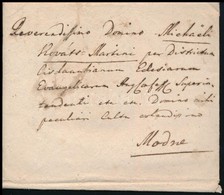 Reverendissimo Domino Michaeli
Kovats Martini per Districtum
Cisdanubianum Ecclesiarum
Evangelicarum Aug. Conf. Superin-
tendenti etc etc. Domino mihi
peculiari cultu colendissimo
Modne